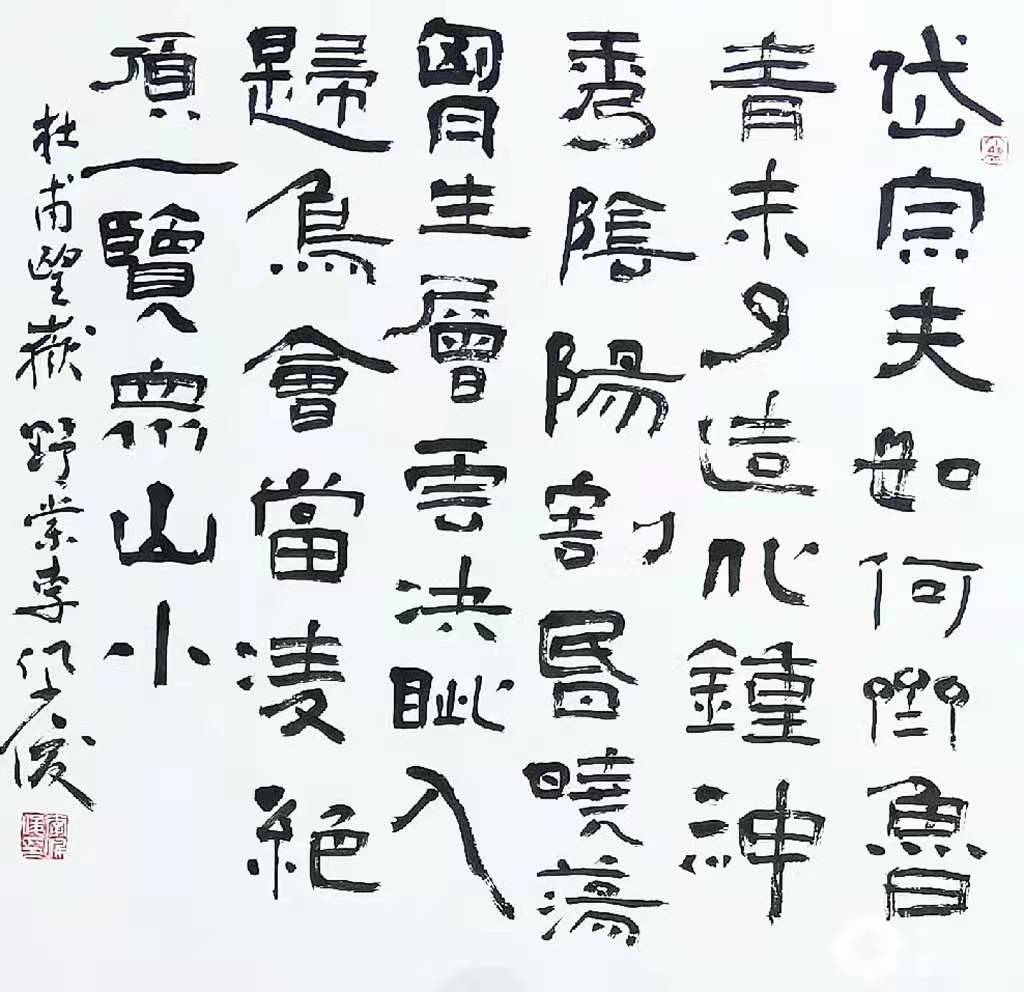 岱宗夫如何齊魯
青未了造化鍾神
秀陰陽割昬曉蕩
胷生層雲決眦入
歸鳥會當凌絕
頂一覽眾山小
杜甫望嶽 野